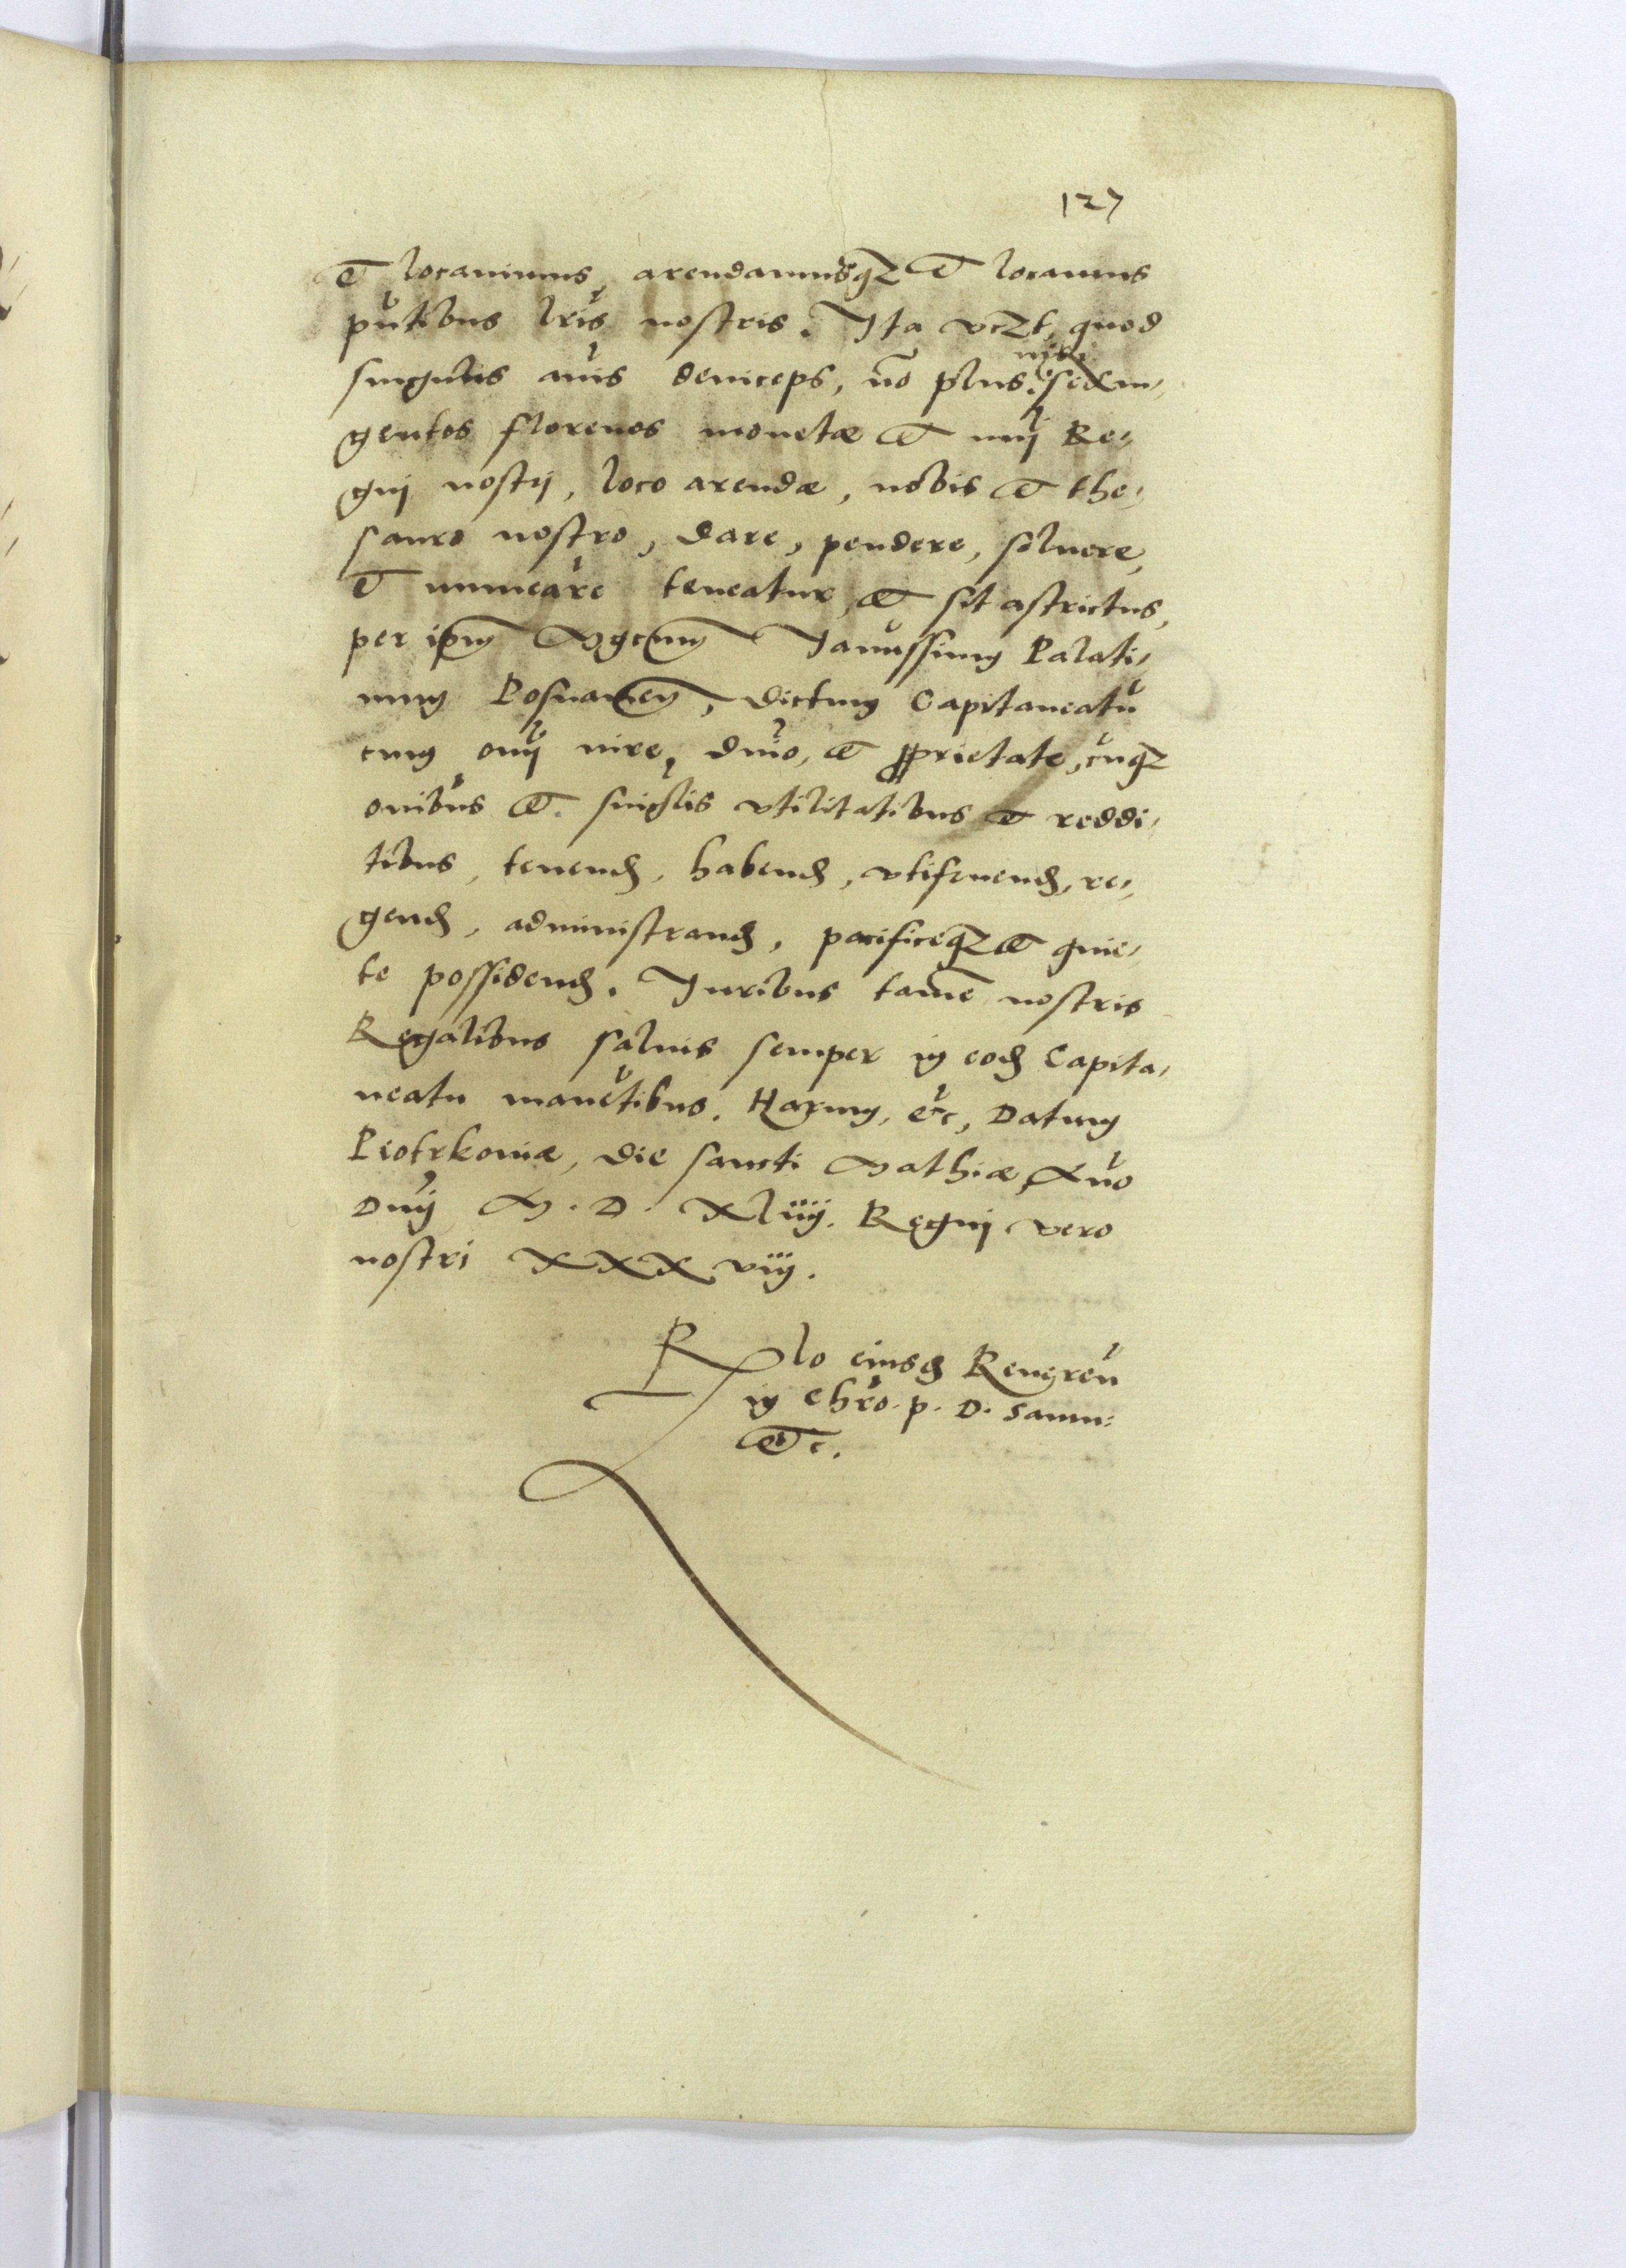 127
et locauimus, arendamusq3 et locamus
pntibus lris nostris. Ita vczt, quod
singulis anis deinceps, no plus nisi sexin-
gentos florenos monetæ et nui Re-
gnj nostrj, loco arendæ, nobis et the-
sauro nostro, dare, pendere, soluere,
et numeare teneatur, et sit astrictus,
per ipm Mgcum Janussium Palati-
num Posnanien, dictum Capitaneatu
cum onj iure, dnio, et proprietate, cuq3
onibus et singlis vtilitatibus et reddi-
tibus, tenend, habend, vtifruend, re-
gend, administrand, pacificeq3 et quie-
te possidend. Juribus tame nostris
Regalibus saluis semper in eod Capita-
neatu manetibus. Harum, etc, Datum
Piotrkouiæ, die sancti Mathiæ, Ano
Dnj M. D. xliiij. Regnj vero
nostri xxx viij.
Rlo eiusd Reueren
in Chro. p. D. Samu:
etc.